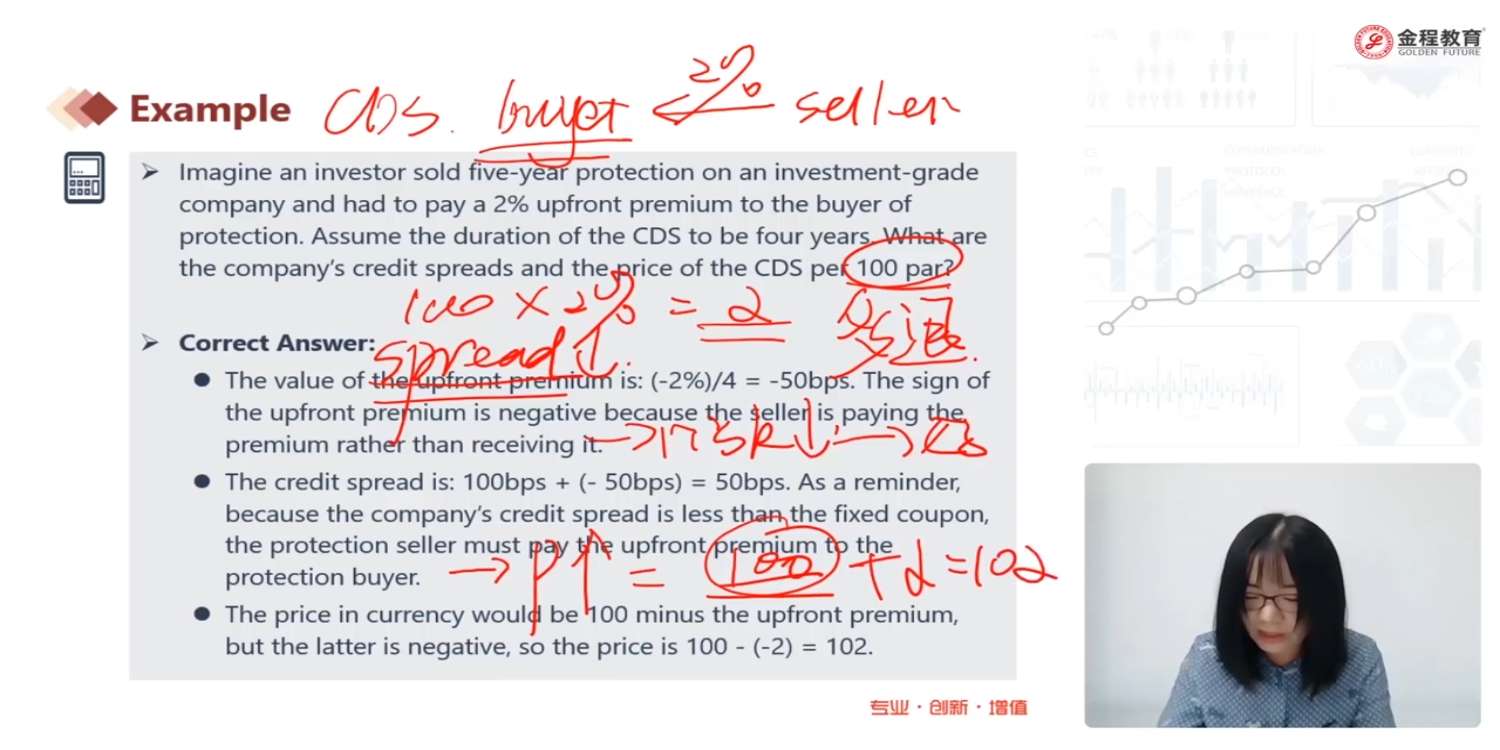 金程教育
GOLDEN FUTURE
Example
CDS. buyer 2% seller
Imagine an investor sold five-year protection on an investment-grade
company and had to pay a 2% upfront premium to the buyer of
protection. Assume the duration of the CDS to be four years. What are
the company's credit spreads and the price of the CDS per 100 par?
100 × 2% = 2 多退
Correct Answer:
spread↓.
The value of the upfront premium is: (-2%)/4 = -50bps. The sign of
the upfront premium is negative because the seller is paying the
premium rather than receiving it.
→ risk↓ →
The credit spread is: 100bps + (- 50bps) = 50bps. As a reminder,
because the company's credit spread is less than the fixed coupon,
the protection seller must pay the upfront premium to the
protection buyer.
→ P↑ = 100 + 2 = 102
The price in currency would be 100 minus the upfront premium,
but the latter is negative, so the price is 100 - (-2) = 102.
专业 · 创新 · 增值